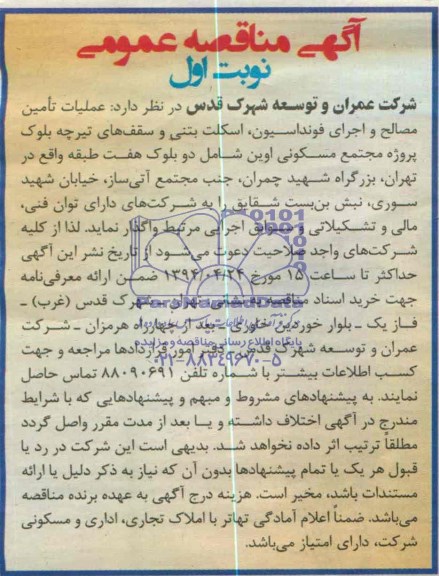 آگهی مناقصه عمومی
نوبت اول
شرکت عمران و توسعه شهرک قدس در نظر دارد: عملیات تأمین
مصالح و اجرای فونداسیون، اسکلت بتنی و سقف‌های تیرچه بلوک
پروژه مجتمع مسکونی اوین شامل دو بلوک هفت طبقه واقع در
تهران، بزرگراه شهید چمران، جنب مجتمع آتی‌ساز، خیابان شهید
سوری، نبش بن‌بست شقایق را به شرکت‌های دارای توان فنی،
مالی و تشکیلاتی و سوابق اجرایی مرتبط واگذار نماید. لذا از کلیه
شرکت‌های واجد صلاحیت دعوت می‌شود از تاریخ نشر این آگهی
حداکثر تا ساعت ۱۵ مورخ ۱۳۹۴/۰۴/۲۴ ضمن ارائه معرفی‌نامه
جهت خرید اسناد مناقصه به نشانی تهران ـ شهرک قدس (غرب) ـ
فاز یک ـ بلوار خوردین ـ بعد از چهارراه هرمزان ـ شرکت
عمران و توسعه شهرک قدس ـ دفتر امور قراردادها مراجعه و جهت
کسب اطلاعات بیشتر با شماره تلفن ۸۸۰۹۰۶۹۱ تماس حاصل
نمایند. به پیشنهادهای مشروط و مبهم و پیشنهادهایی که با شرایط
مندرج در آگهی اختلاف داشته و یا بعد از مدت مقرر واصل گردد
مطلقاً ترتیب اثر داده نخواهد شد. بدیهی است این شرکت در رد یا
قبول هر یک یا تمام پیشنهادها بدون آن که نیاز به ذکر دلیل یا ارائه
مستندات باشد، مخیر است. هزینه درج آگهی به عهده برنده مناقصه
می‌باشد. ضمناً اعلام آمادگی تهاتر با املاک تجاری، اداری و مسکونی
شرکت، دارای امتیاز می‌باشد.
پایگاه اطلاع رسانی مناقصه و مزایده
۰۲۱-۸۸۳۴۹۶۷۰-۵